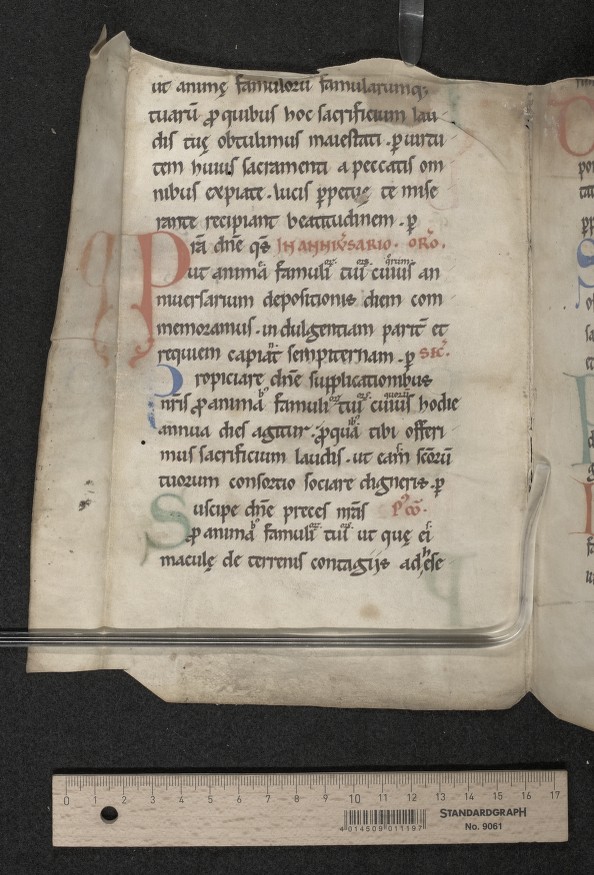 ut animę famuloꝝ famularumq;
tuarū ꝓ quibus hoc sacrificium lau
dis tuę obtulimus maiestati . ꝑ uirtu
tem huius sacramenti a peccatis om
nibus expiate . lucis ꝑpetuę te mise
rante recipiant beatitudinem . ꝑ
IN ANNIVSARIO . ORO .
Prā dn̄e qs̄
ut animā famuli tui cuius an
niuersarium depositionis diem com
memoramus . indulgentiam parit̄ et
requiem capiat sempiternam . ꝑ SEC̄ .
Propiciare dn̄e supplicationibus
nr̄is ꝓ anima famuli tui cuius hodie
annua dies agitur . ꝓ qua tibi offeri
mus sacrificium laudis . ut eam scōrū
tuorum consortio sociare digneris . ꝑ
Suscipe dn̄e preces nr̄as
ꝓ anima famuli tui ut quę ei
maculę de terrenis contagiis adhese
0 1 2 3 4 5 6 7 8 9 10 11 12 13 14 15 16 17
STANDARDGRAPH
No. 9061
4 014509 011197